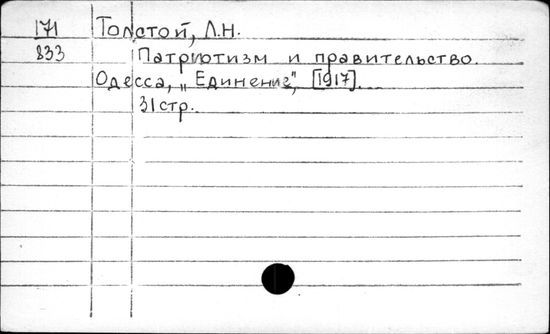 171 Толстой, Л.Н.
833 Патриотизм и правительство.
Одесса, „Единение", [1917].
31стр.